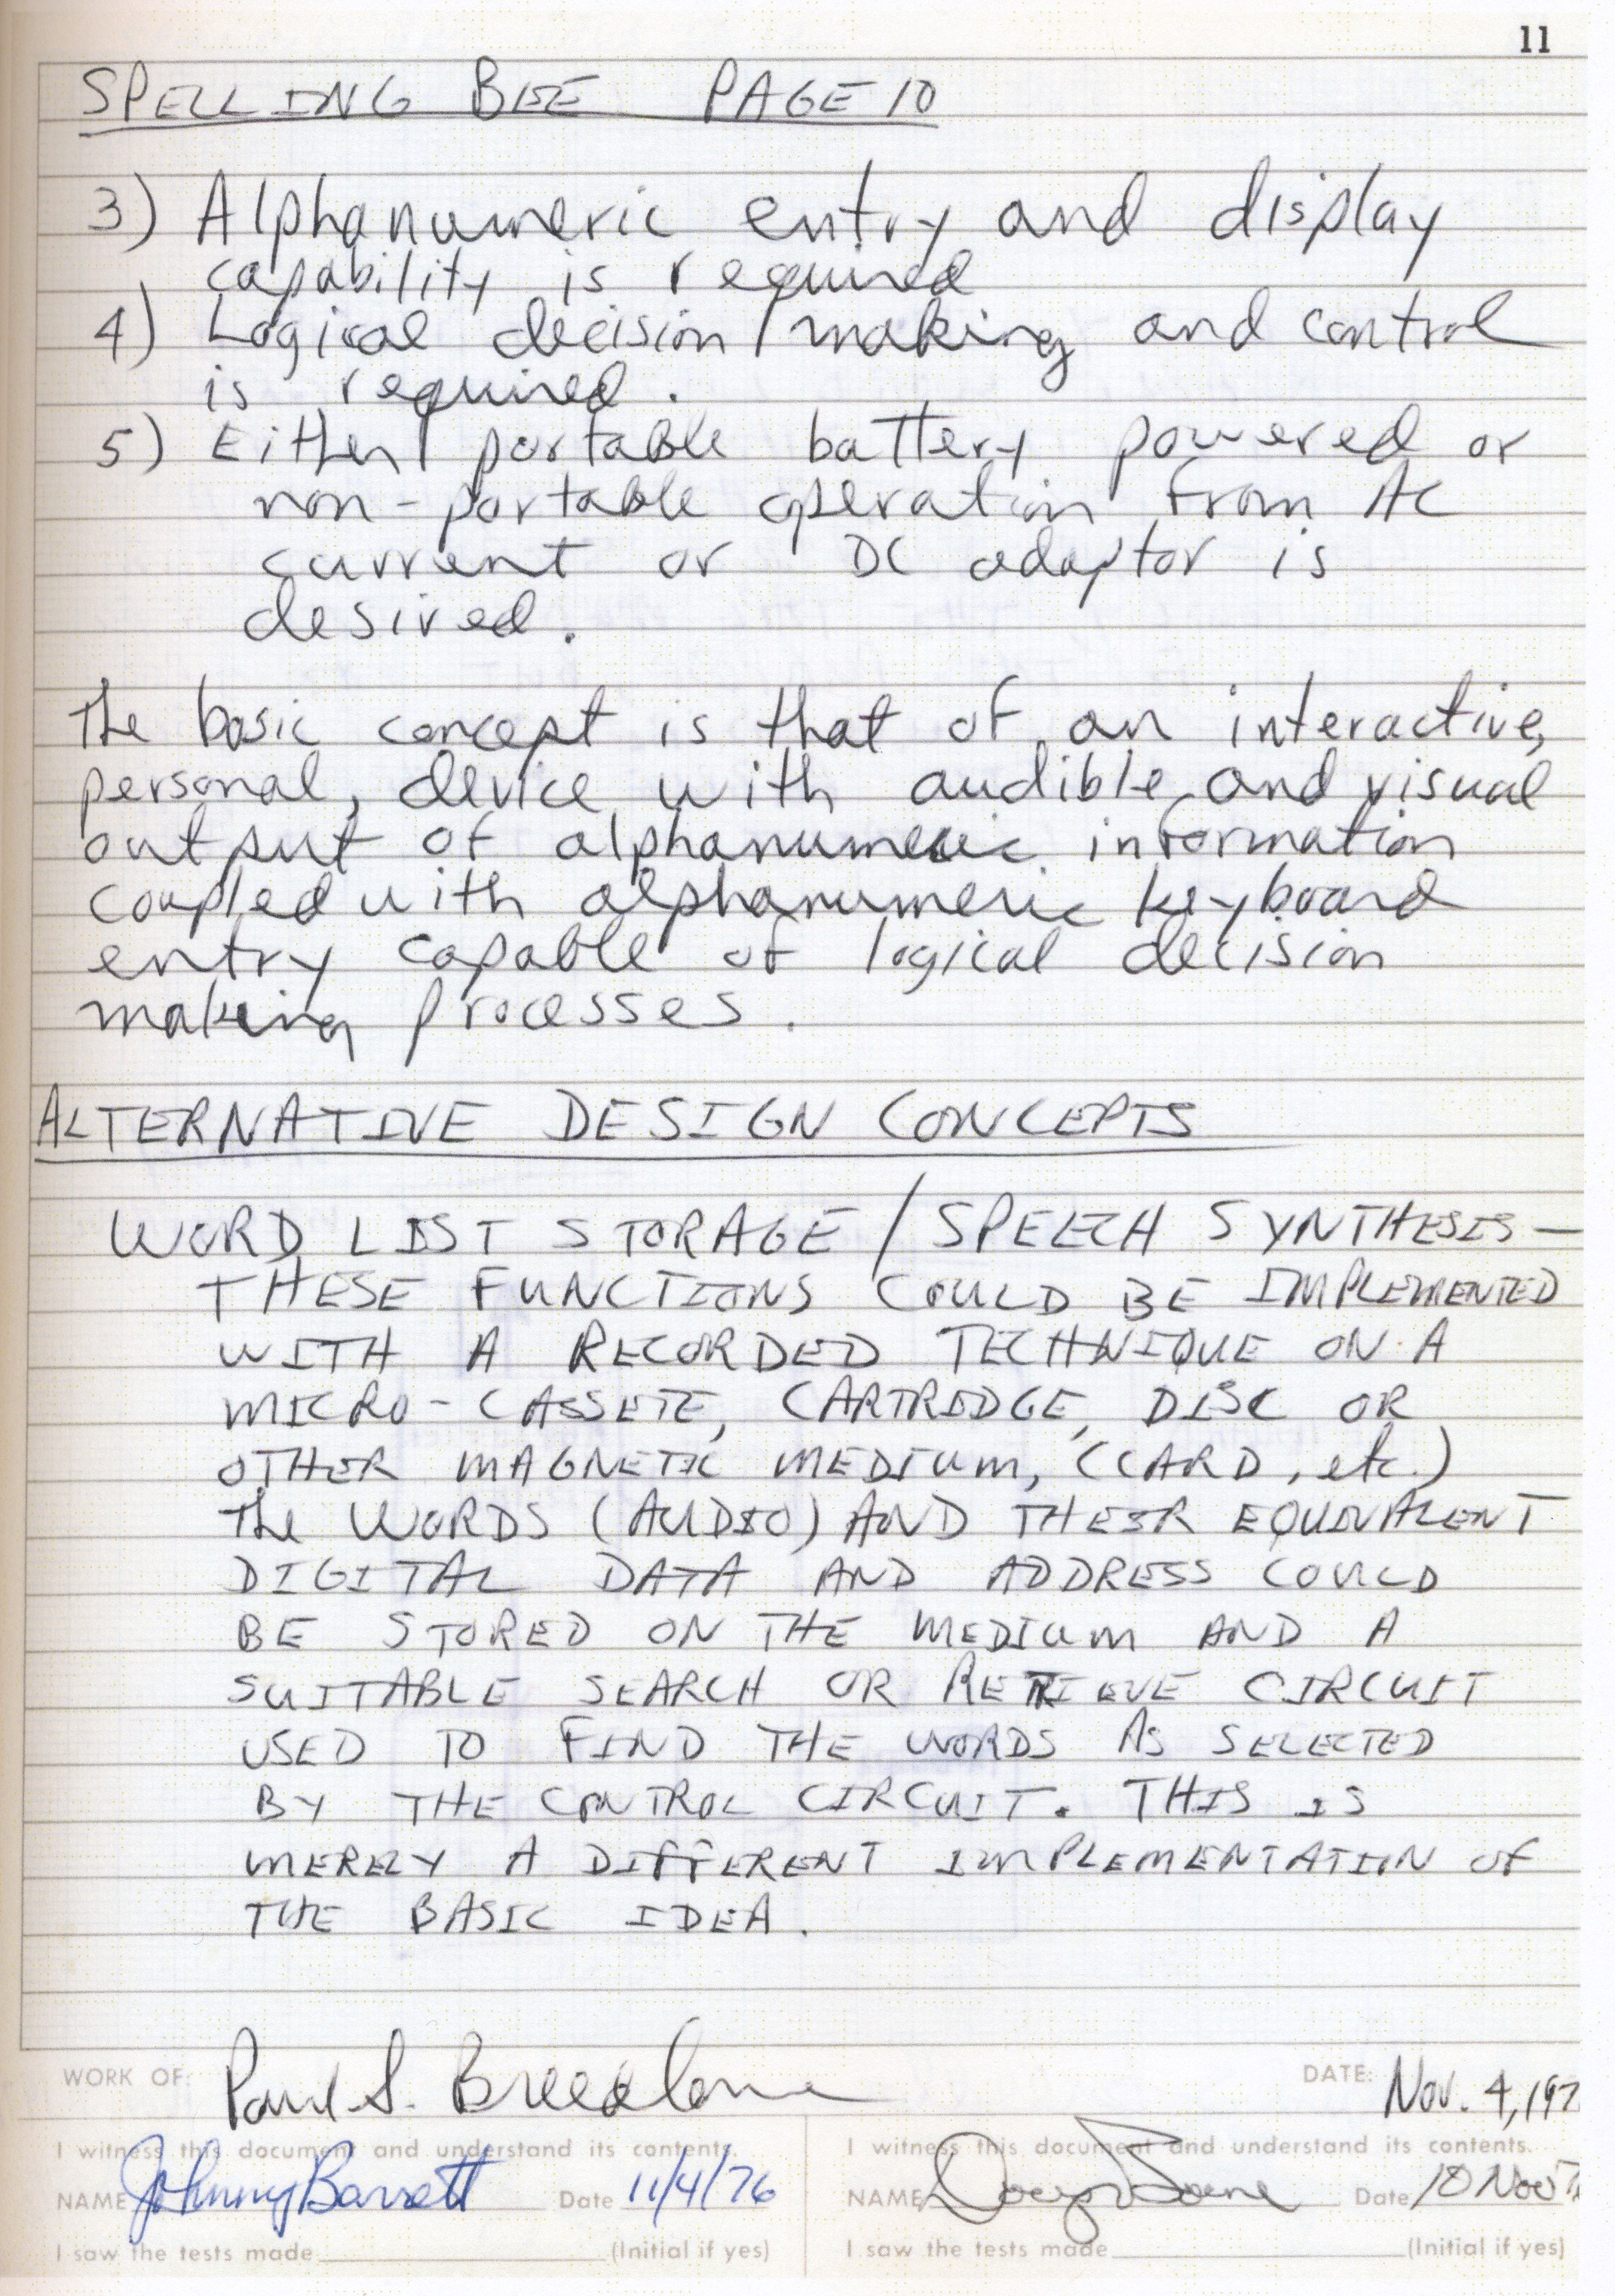 11
SPELLING BEE PAGE 10
3) Alphanumeric entry and display
capability is required
4) Logical decision making and control
is required.
5) Either portable battery powered or
non-portable operation from AC
current or DC adaptor is
desired.
The basic concept is that of an interactive,
personal, device with audible and visual
output of alphanumeric information
coupled with alphanumeric keyboard
entry capable of logical decision
making processes.
ALTERNATIVE DESIGN CONCEPTS
WORD LIST STORAGE / SPEECH SYNTHESIS —
THESE FUNCTIONS COULD BE IMPLEMENTED
WITH A RECORDED TECHNIQUE ON A
MICRO-CASSETE, CARTRIDGE, DISC OR
OTHER MAGNETIC MEDIUM, (CARD, etc.)
The WORDS (AUDIO) AND THEIR EQUIVALENT
DIGITAL DATA AND ADDRESS COULD
BE STORED ON THE MEDIUM AND A
SUITABLE SEARCH OR RETRIEVE CIRCUIT
USED TO FIND THE WORDS AS SELECTED
BY THE CONTROL CIRCUIT. THIS IS
MERELY A DIFFERENT IMPLEMENTATION OF
THE BASIC IDEA.
WORK OF: Paul S. Breedlove DATE: Nov. 4, 197
I witness this document and understand its contents. I witness this document and understand its contents.
NAME Johnny Barrett Date 11/4/76 NAME Date 10 Nov
I saw the tests made (Initial if yes) I saw the tests made (Initial if yes)